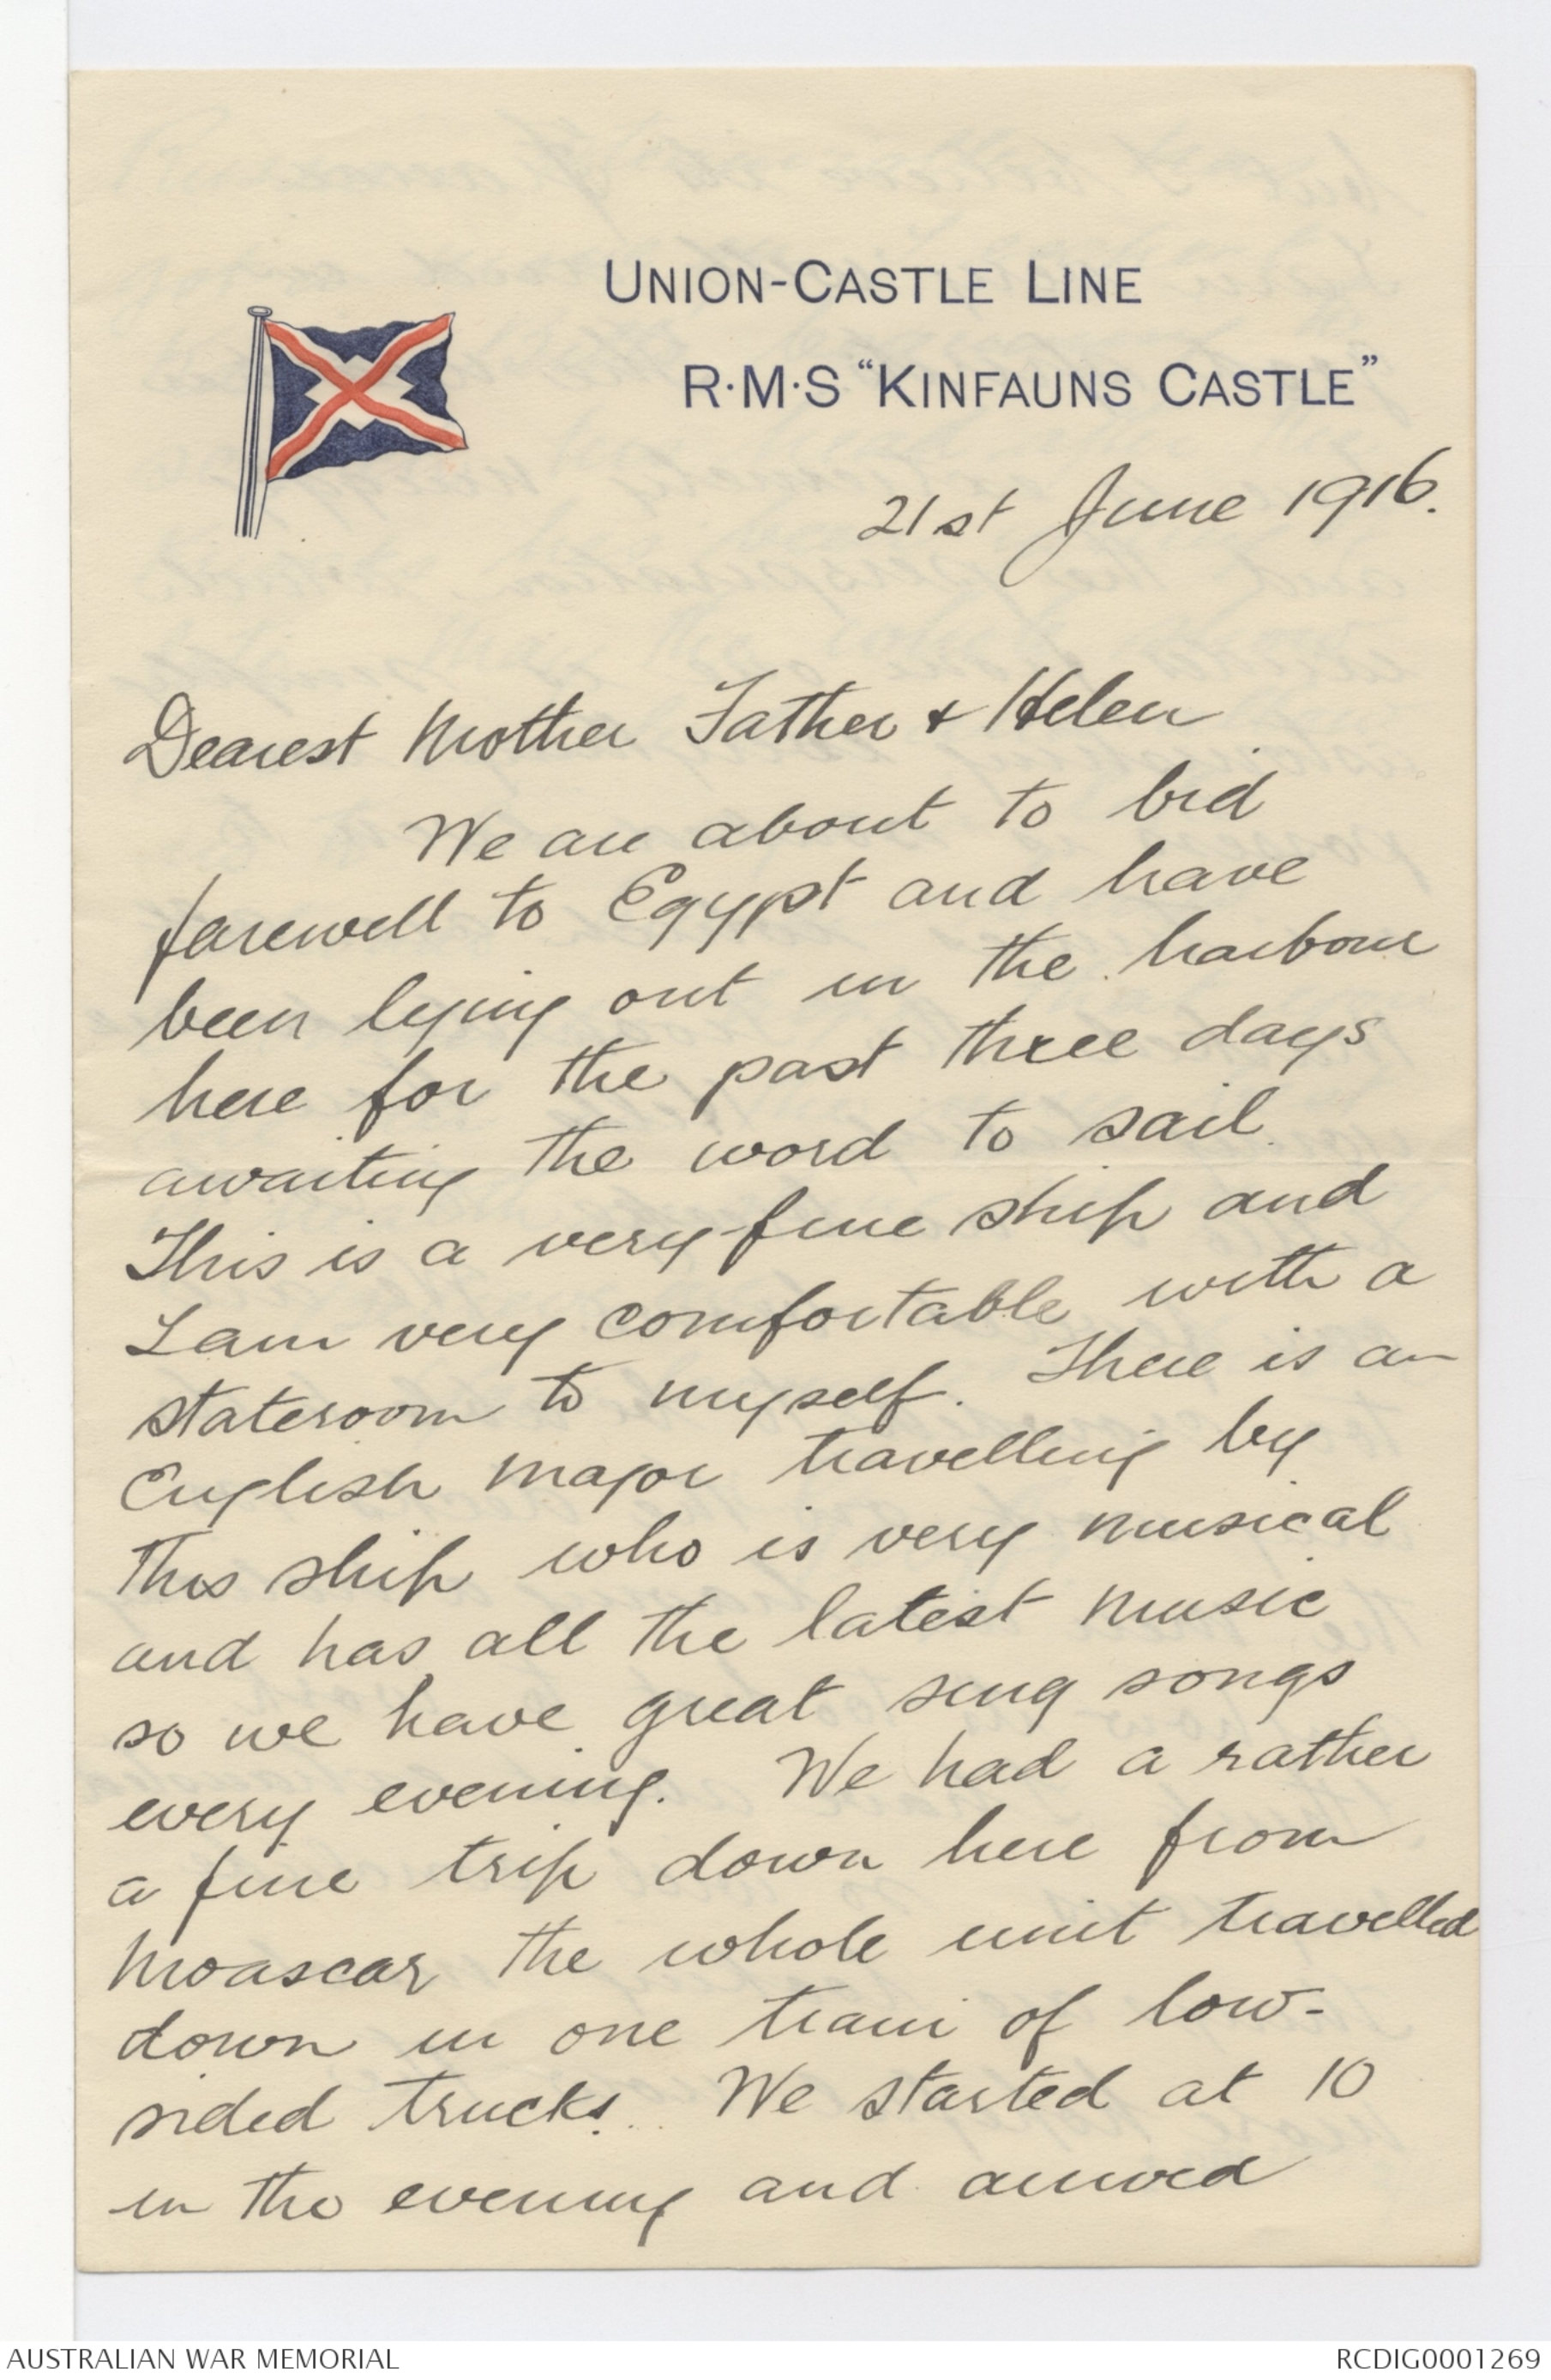 UNION-CASTLE LINE
R·M·S "KINFAUNS CASTLE"
21st June 1916.
Dearest Mother Father & Helen
We are about to bid
farewell to Egypt and have
been lying out in the harbour
here for the past three days
awaiting the word to sail.
This is a very fine ship and
I am very comfortable with a
stateroom to myself. There is an
English major travelling by
this ship who is very musical
and has all the latest music
so we have great sing songs
every evening. We had a rather
a fine trip down here from
Moascar the whole unit travelled
down in one train of low-
sided trucks. We started at 10
in the evening and arrived
AUSTRALIAN WAR MEMORIAL
RCDIG0001269